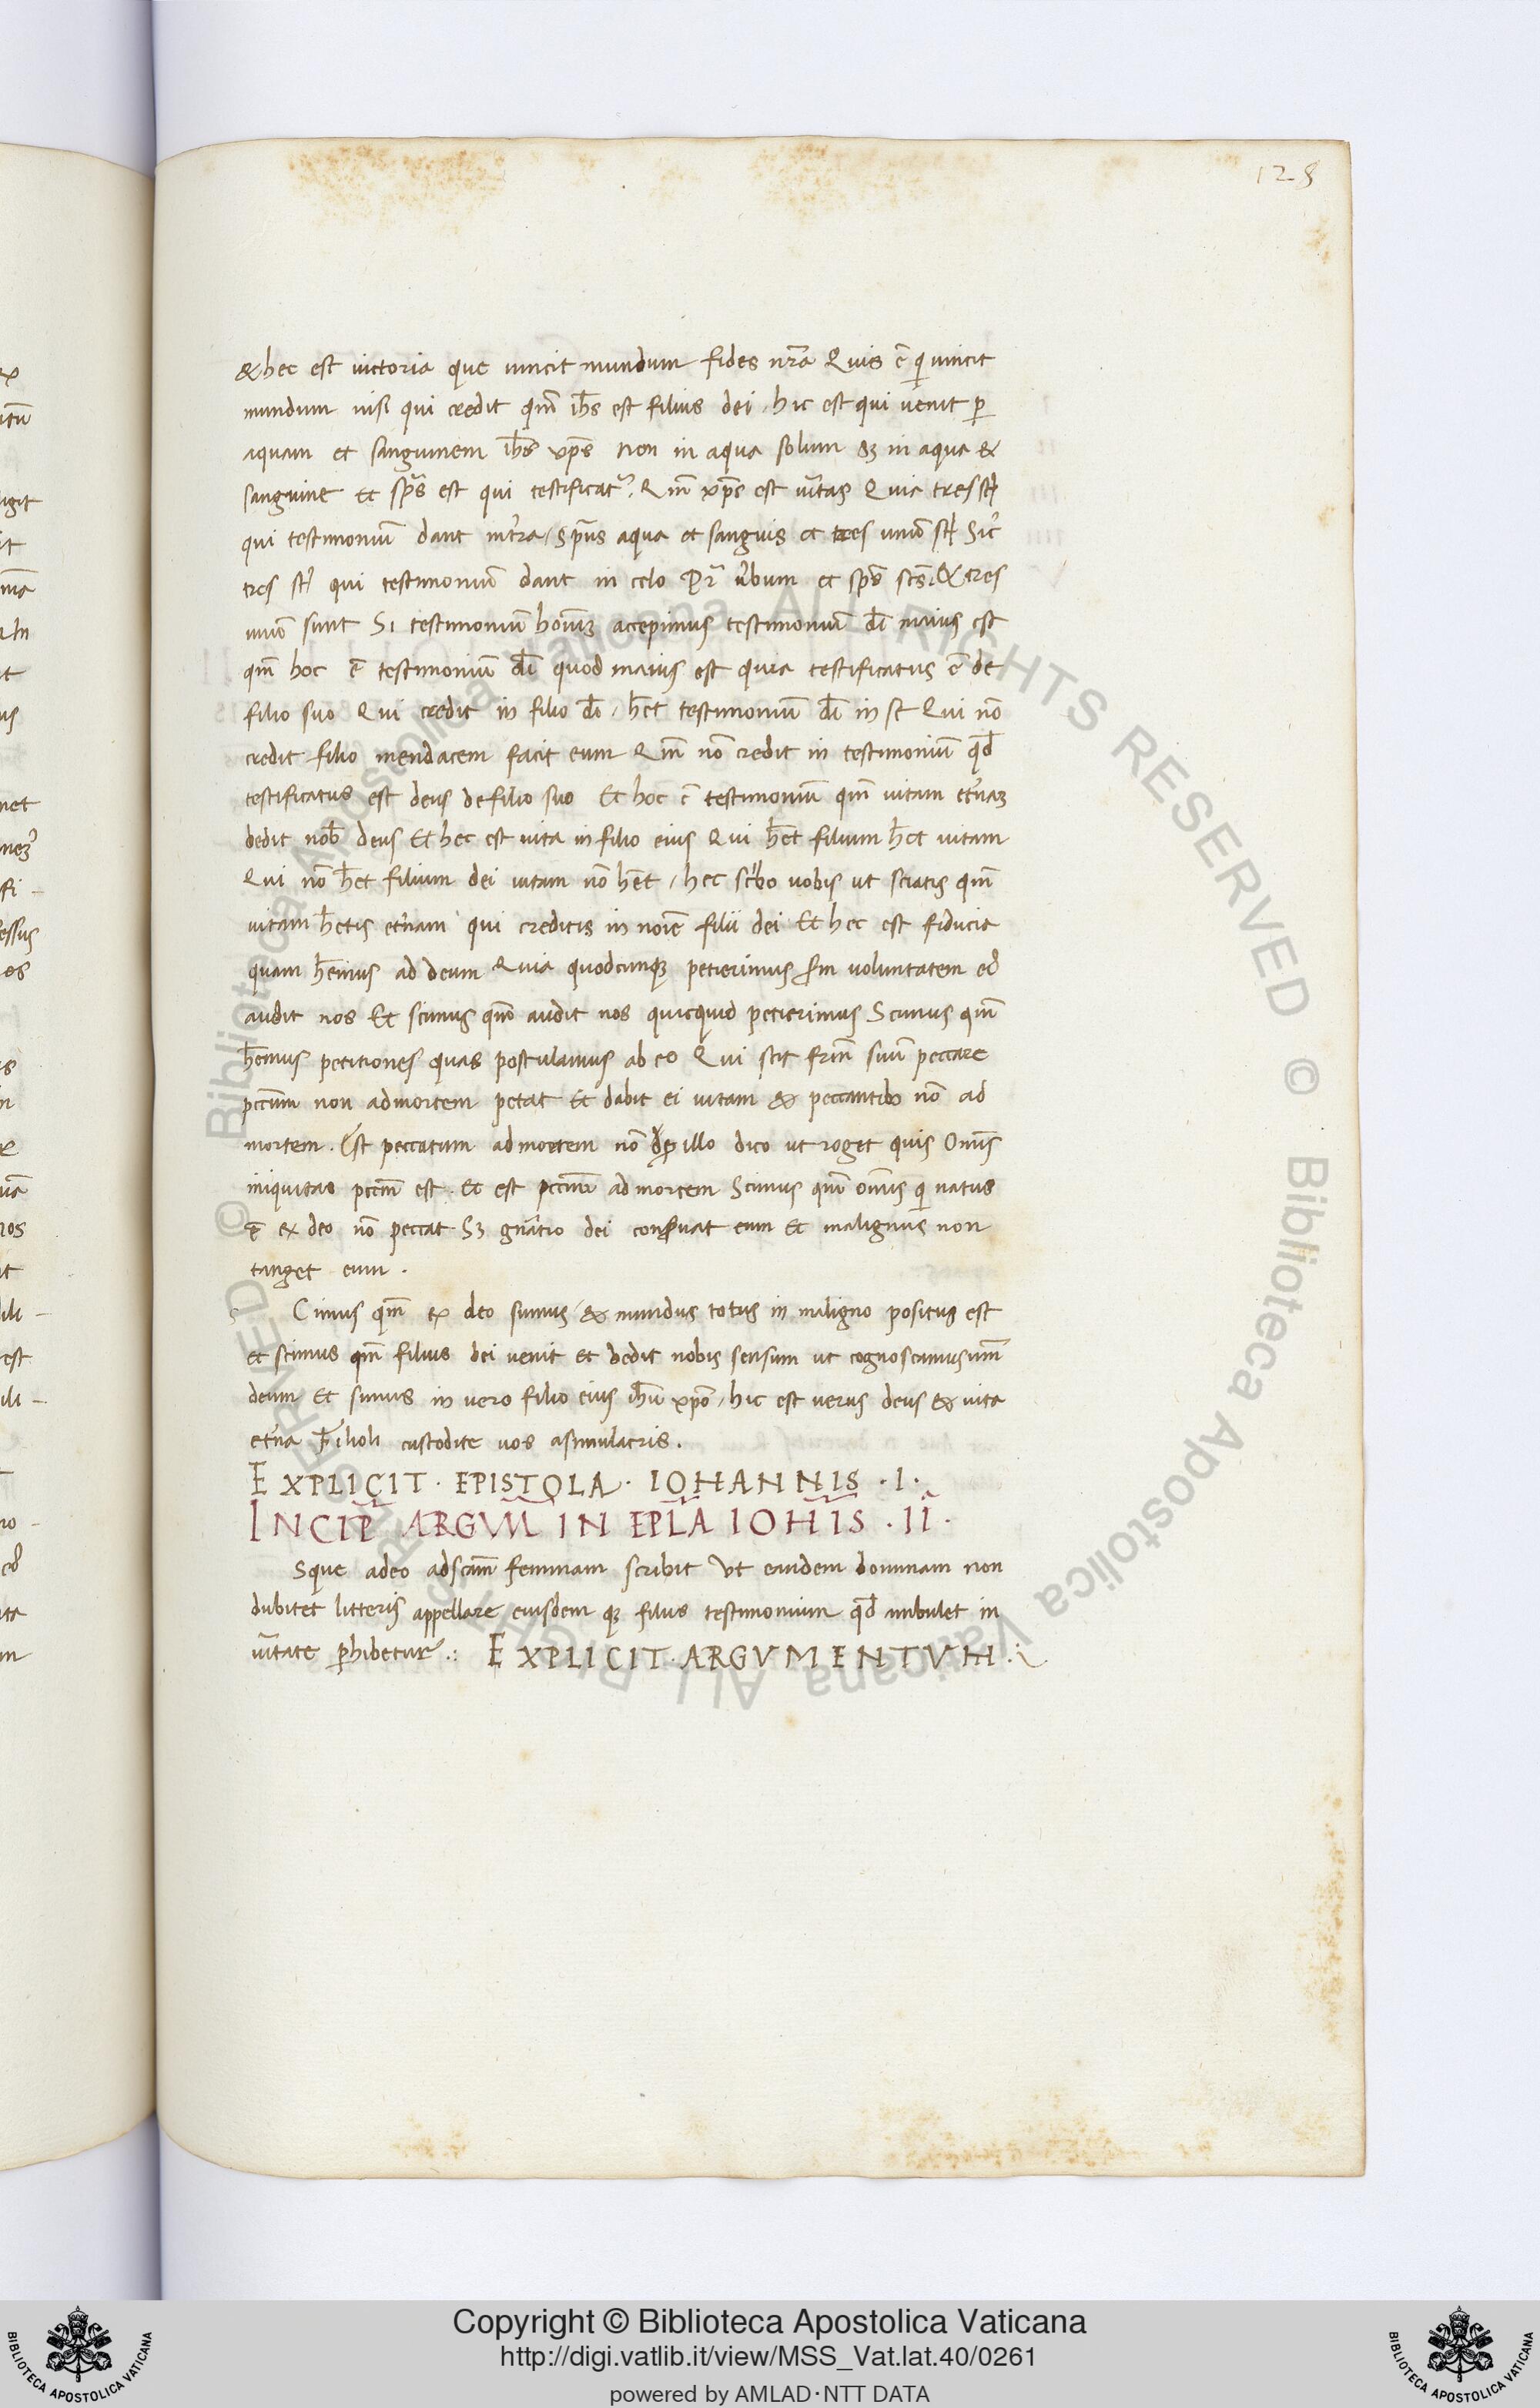 128
& hec est victoria que vincit mundum fides nr̃a Quis ẽ qͥ vincit
mundum nisi qui credit qm̃ ih̃s est filius dei / hic est qui venit ꝑ
aquam et sanguinem ih̃s xp̃s non in aqua solum sꝫ in aqua &
sanguine Et sp̃s est qui testificat᷑. Qm̃ xp̃s est ũitas Quia tres st̃
qui testimoniũ dant in t̃ra / Sp̃us aqua et sanguis et tres unũ st̃ Sic̃
tres st̃ qui testimoniũ dant in celo Pr̃ ũbum et sp̃s sc̃s. & tres
unũ sunt Si testimoniũ hoĩuꝫ accepimus testimoniũ dĩ maius est
qm̃ hoc ẽ testimoniũ dĩ quod maius est quia testificatus ẽ de
filio suo Qui credit in filio dĩ / h̃et testimoniũ dĩ in se Qui nõ
credit filio mendacem facit eum Qm̃ nõ credit in testimoniũ qd̃
testificatus est deus de filio suo Et hoc ẽ testimoniũ qm̃ vitam et̃naꝫ
dedit nob̃ deus Et hec est vita in filio eius Qui h̃et filium h̃et vitam
Qui nõ h̃et filium dei vitam nõ h̃et / hec sc̃bo vobis ut sciatis qm̃
vitam h̃etis et̃nam qui creditis in noĩe filii dei Et hec est fiducia
quam h̃emus ad deum Quia quodcunqꝫ petierimus sm̃ voluntatem eꝰ
audit nos Et scimus qm̃ audit nos quicquid petierimus Scimus qm̃
h̃emus petitiones quas postulamus ab eo Qui scit fr̃m suũ peccare
pccm̃ non ad mortem petat Et dabit ei vitam & peccantibꝫ nõ ad
mortem. Est peccatum ad mortem nõ ꝓ illo dico ut roget quis Om̃s
iniquitas pccm̃ est. Et est pccm̃ ad mortem Scimus qm̃ om̃is qͥ natus
ẽ ex deo nõ peccat Sꝫ gñatio dei conservat eum Et malignus non
tanget eum .
s Cimus qm̃ ex deo sumus / & mundus totus in maligno positus est
et scimus qm̃ filius dei venit et dedit nobis sensum ut cognoscamus um̃
deum Et simus in vero filio eius ih̃u xp̃o / hic est verus deus & vita
et̃na Filioli custodite vos asimulacris.
EXPLICIT · EPISTOLA · IOHANNIS · I ·
INCIP̃ ARGVM̃ IN EPL̃A IOHIS̃ · II ·
Sque adeo ad sc̃am feminam scribit Vt eandem dominam non
dubitet litteris appellare eiusdem qꝫ filiis testimonium qd̃ ambulet in
ũitate ꝑhibetur .: EXPLICIT · ARGVMENTVM .:
© Biblioteca Apostolica Vaticana ALL RIGHTS RESERVED © Biblioteca Apostolica Vaticana ALL RIGHTS RESERVED
Copyright © Biblioteca Apostolica Vaticana
http://digi.vatlib.it/view/MSS_Vat.lat.40/0261
powered by AMLAD·NTT DATA
BIBLIOTECA APOSTOLICA VATICANA
BIBLIOTECA APOSTOLICA VATICANA